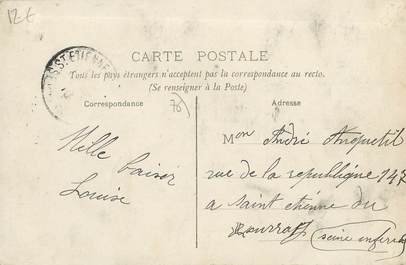 12 €
S.ST.ETIENNE
CARTE POSTALE
Tous les pays étrangers n'acceptent pas la correspondance au recto.
(Se renseigner à la Poste)
Correspondance
76
Adresse
Mille baiser
Louise
Mon André Anquetil
rue de la republique 147
a saint etienne du
Rouvray (seine inferie